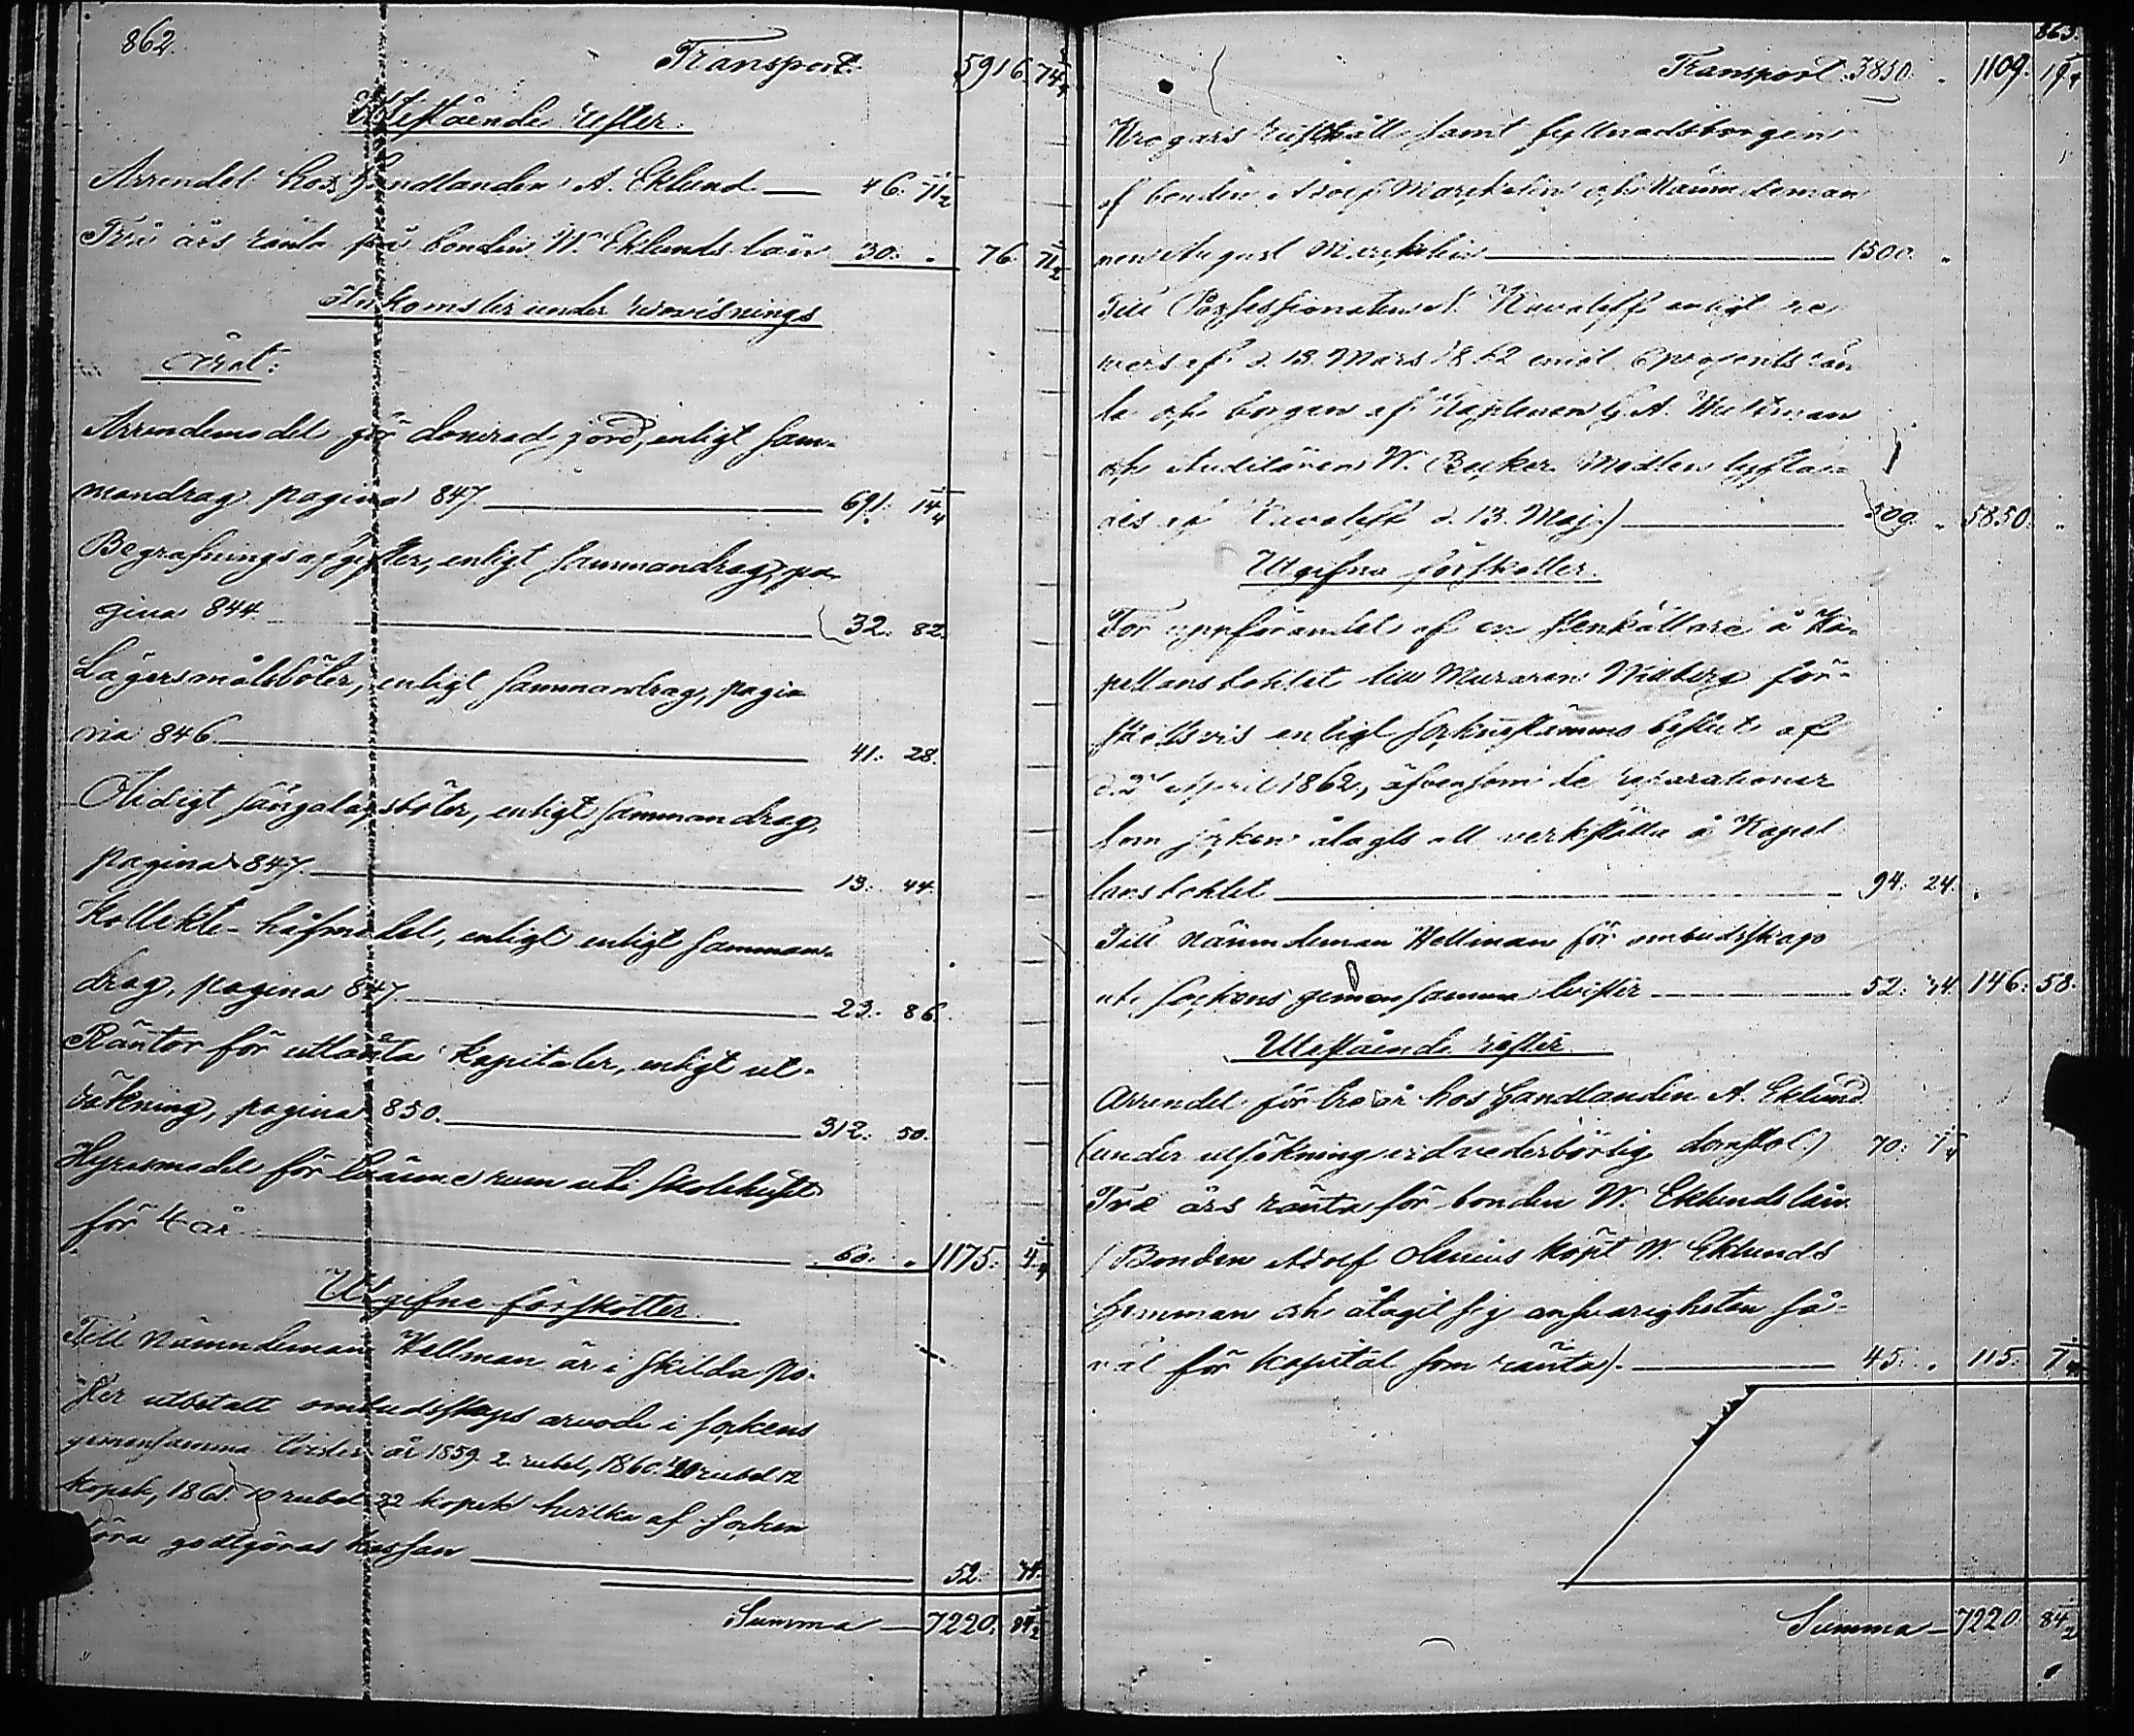 862.
Transport. 5916. 74 1/4
Utestående rester.
Arrendet hos handlanden A. Eklund — 46. 71 1/2
Två års ränta på bonden W. Eklunds lån 30. „ 76. 71 1/2
Inkomster under redovisnings
året:
Arrendemedel för donerad jord, enligt sam-
mandrag pagina 847. — 691. 14 1/4
Begrafningsafgifter, enligt sammandrag, pa-
gina 844. — 32. 82.
Lägersmålsböter, enligt sammandrag, pagi-
na 846. — 41. 28.
Otidigt sängalagsböter, enligt sammandrag,
pagina 847. — 13. 44.
Kollekte-håfmedel, enligt enligt samman-
drag, pagina 847. — 23. 86.
Räntor för utlånta kapitaler, enligt ut-
räkning, pagina 850. — 312. 50.
Hyresmedel för tvänne rum uti skolehuset
för 4 år — 60. „ 1175. 4 1/4
Utgifne förskotter.
Till Nämndeman Hellman är i skilda po-
ster utbetalt ombudskaps arvode i sockens
gemensamma tvister år 1859 2 rubel, 1860. rubel 12
kopek, 1861. 10 rubel 22 kopek hvilka af socken
böra godtgöras kassan — 52. 34.
Summa — 7220. 84 1/2
863.
Transport. 3850. „ 1109. 19 1/4
Krogars rusthåll samt fyllnadsborgen
af bonden Adolf Marckelin och Nämndeman
nen August Marckelin — 1500. „
Till Professionaten Kavaleff enligt re
vers af d. 13. Mars 1862 emot 6 procents rän
ta och borgen af Kaplanen G. A. Hultman
och Auditören W. Becker (Medlen lyftades
des af Kavaleff d. 13. Maj.) — 500. „ 5850. „
Utgifne förskotter.
För uppförandet af en stenkällare å Ka-
pellansbohlet till Muraren Widberg för-
skottsvis enligt sockenstämmo beslut af
d. 2 April 1862, äfvensom de reparationer
som socken ålagts att verkställa å Kapel
lansbohlet — 94. 24.
Till Nämndeman Hellman för ombudskap
uti sockens gemensamma tvister — 52. 34. 146. 58.
Utestående rester.
Arrendet för tre år hos Handlanden A. Eklund
(under utsökning vid vederbörlig domstol.) 70. 7 1/4
Tre års ränta för bonden W. Eklunds lån.
(Bonden Adolf Olenius köpt W. Eklunds
hemman och åtagit sig ansvarigheten så-
väl för kapital som ränta). — 45. „ 115. 7 1/4
Summa — 7220. 84 1/2